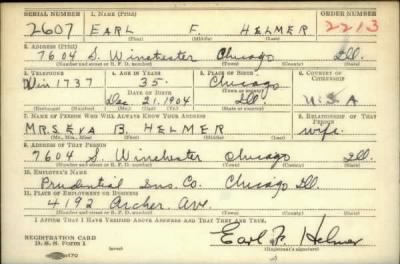 SERIAL NUMBER 1. NAME (Print) ORDER NUMBER
2607 EARL F. HELMER 2213
(First) (Middle) (Last)
2. ADDRESS (Print)
7604 S. Winchester Chicago Ill.
(Number and street or R. F. D. number) (Town) (County) (State)
3. TELEPHONE 4. AGE IN YEARS 5. PLACE OF BIRTH 6. COUNTRY OF CITIZENSHIP
1737 35 Chicago
DATE OF BIRTH (Town or county)
Dec 21, 1904 Ill U.S.A
(Exchange) (Number) (Mo.) (Day) (Yr.) (State or country)
7. NAME OF PERSON WHO WILL ALWAYS KNOW YOUR ADDRESS 8. RELATIONSHIP OF THAT PERSON
MRS EVA B. HELMER wife
(Mr., Mrs., Miss) (First) (Middle) (Last)
9. ADDRESS OF THAT PERSON
7604 S. Winchester Chicago Ill.
(Number and street or R. F. D. number) (Town) (County) (State)
10. EMPLOYER'S NAME
Prudential Ins. Co. Chicago Ill.
11. PLACE OF EMPLOYMENT OR BUSINESS
4192 Archer Ave.
(Number and street or R. F. D. number) (Town) (County) (State)
I AFFIRM THAT I HAVE VERIFIED ABOVE ANSWERS AND THAT THEY ARE TRUE.
REGISTRATION CARD
D. S. S. Form 1
Earl F. Helmer
(Registrant's signature)